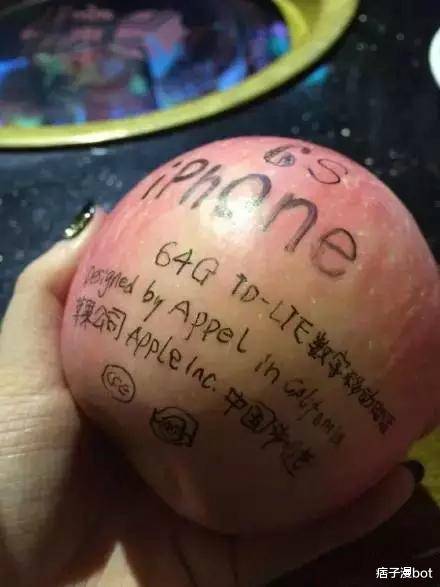 6S
iPhone
64G TD-LTE 数字移动电话
Designed by Appel in California
苹果公司 Apple Inc. 中国制造
CCC
痞子漫bot